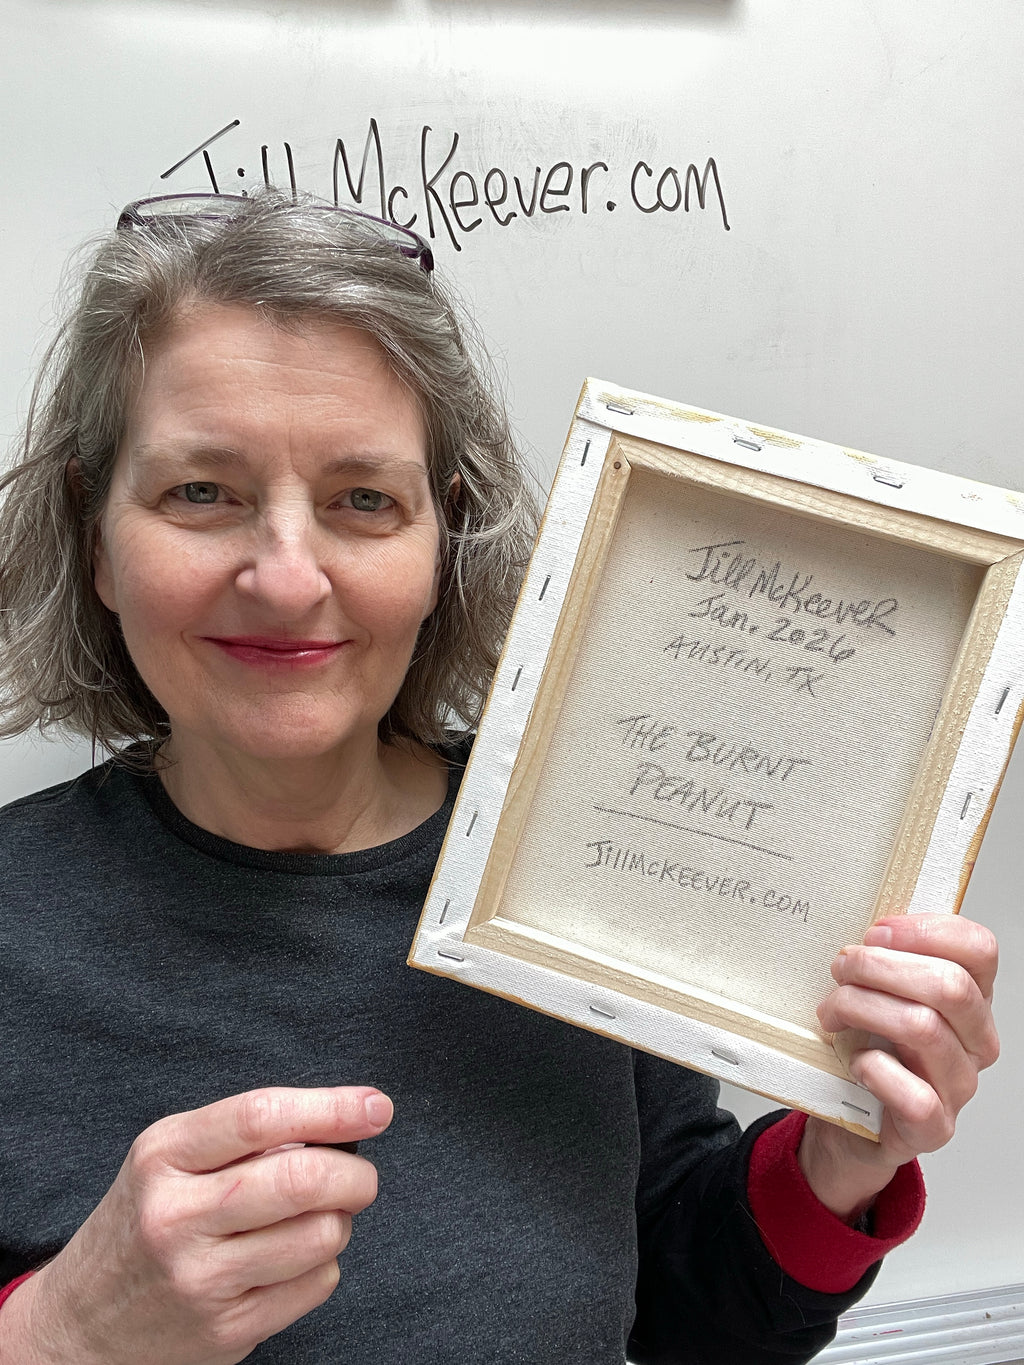 Jill McKeever.com
Jill McKeever
Jan. 2026
Austin, TX
THE BURNT
PEANUT
JillMcKEEVER.COM